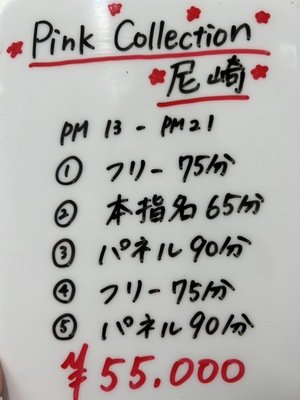 Pink Collection
尼崎
PM 13 - PM 21
① フリー 75分
② 本指名 65分
③ パネル 90分
④ フリー 75分
⑤ パネル 90分
¥55.000